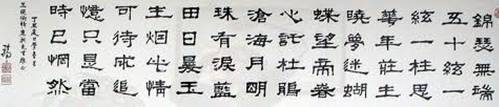 錦瑟無端
五十絃一
絃一柱思
華年莊生
曉夢迷蝴
蝶望帝春
心託杜鵑
滄海月明
珠有淚藍
田日暖玉
生烟此情
可待成追
憶只是當
時已惘然